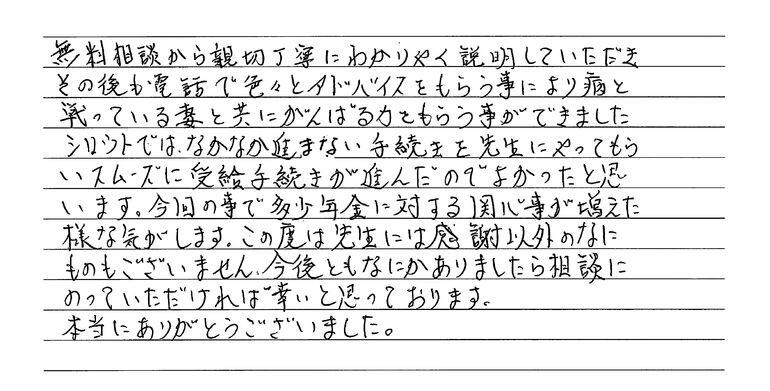 無料相談から親切丁寧にわかりやく説明していただき
その後も電話で色々とアドバイスをもらう事により病と
戦っている妻と共にがんばる力ともらう事ができました
シロウトでは、なかなか進まない手続きを先生にやってもら
いスムーズに受給手続きが進んだのでよかったと思
います。今回の事で多少年金に対する関心事が増えた
様な気がします。この度は先生には感謝以外のなに
ものもございません、今後ともなにかありましたら相談に
のっていただければ幸いと思っております。
本当にありがとうございました。